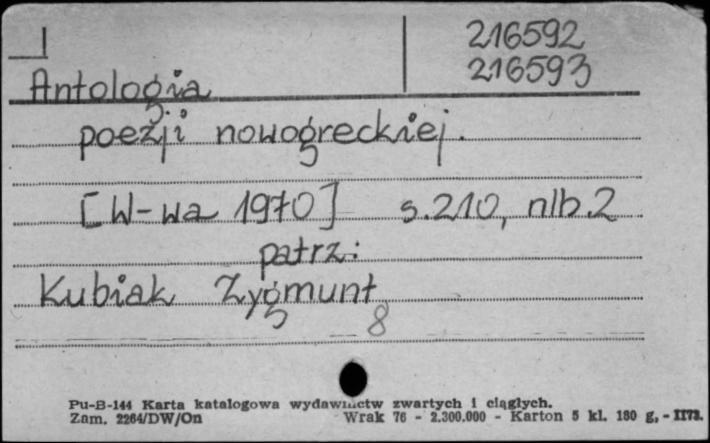 216592
216593
Antologia
poezji nowogreckiej.
[W-wa 1970] s.210, nlb.2
patrz:
Kubiak Zygmunt
8
Pu-B-144 Karta katalogowa wydawnictw zwartych i ciągłych.
Zam. 2264/DW/On Wrak 76 - 2.300.000 - Karton 5 kl. 180 g.